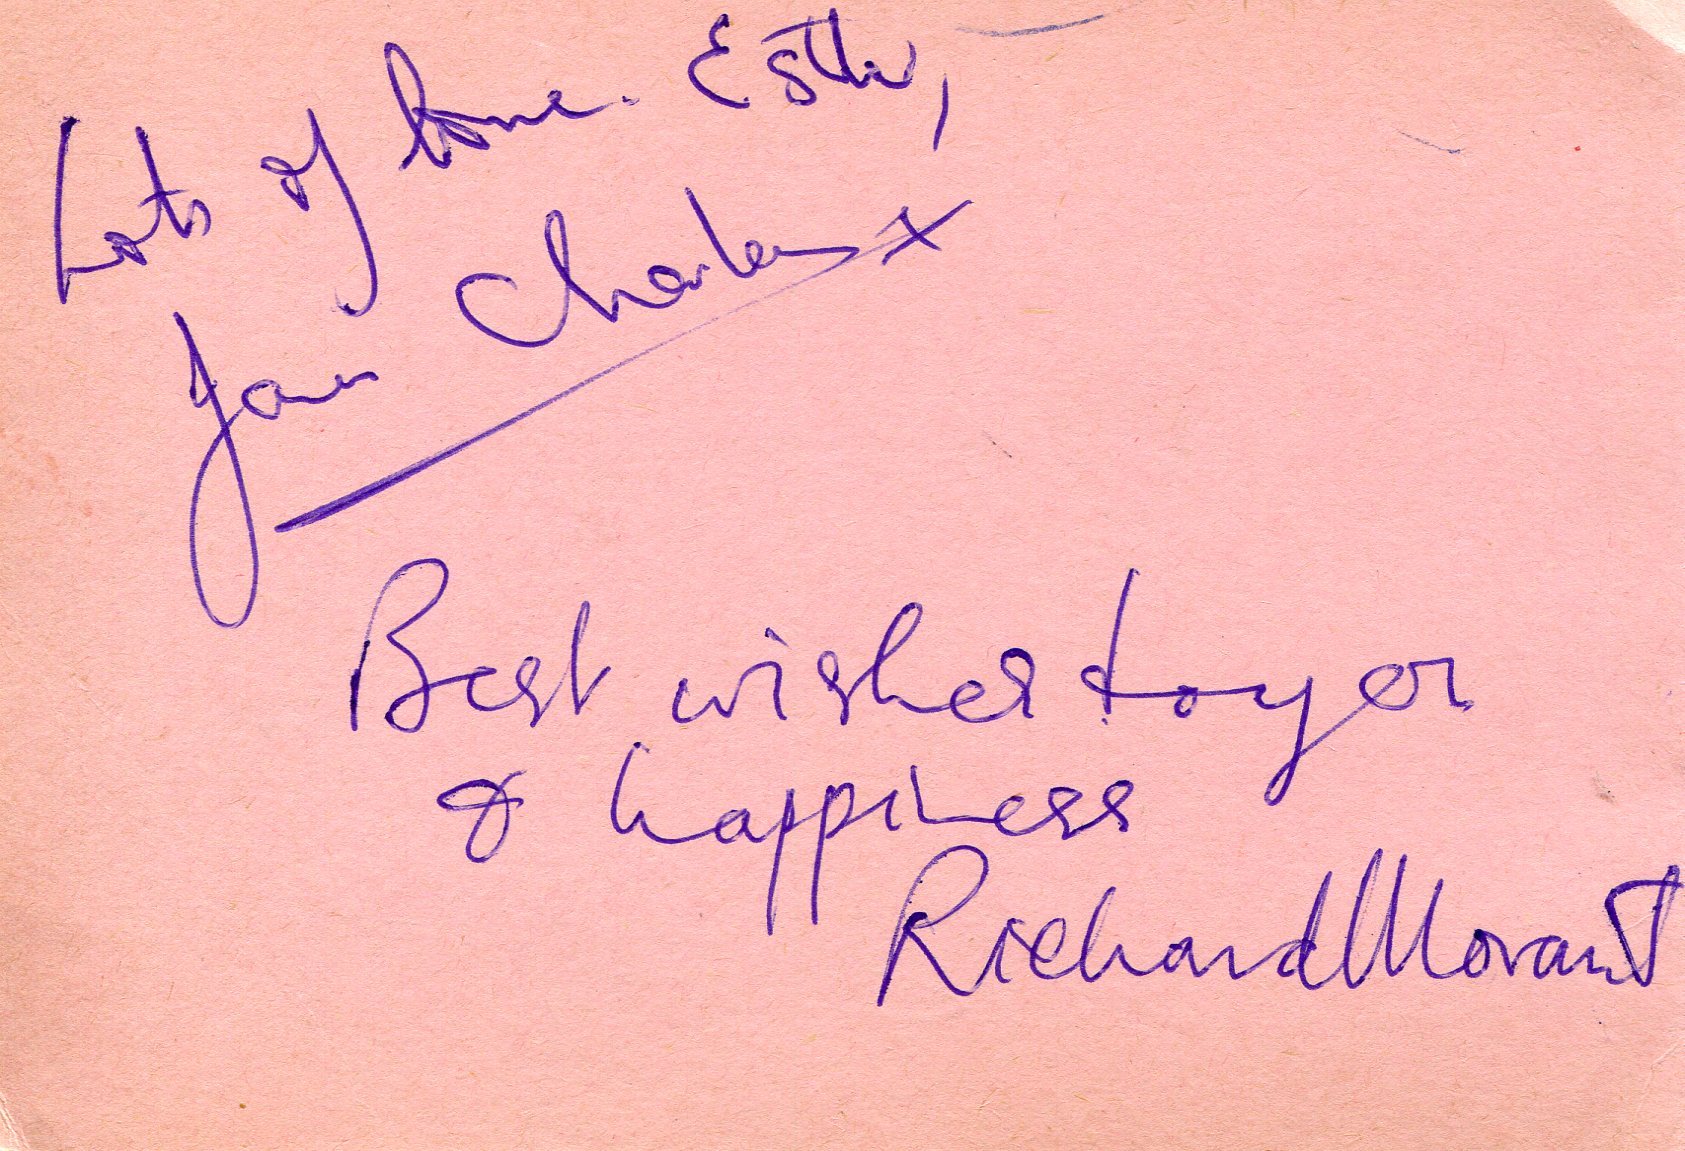 Lots of love. Esther,
Charles x
Best wishes to you
& happiness
Richard Morant